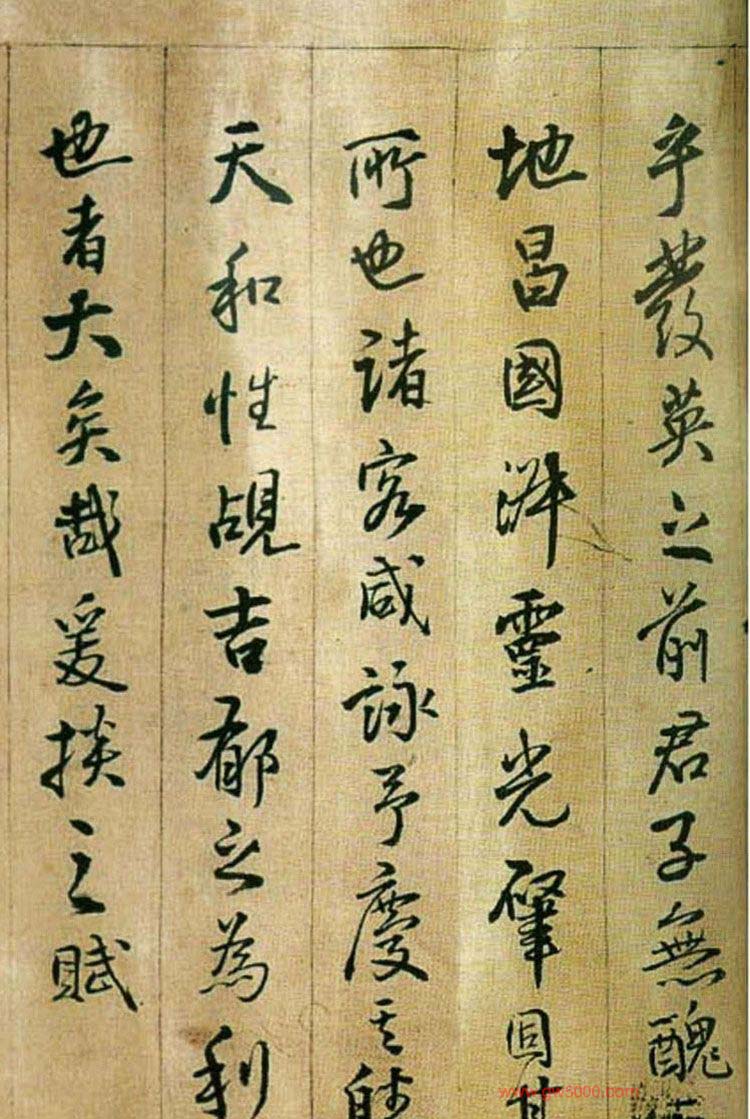 乎發英之前君子無醜
地昌國靈光肇
所也諸客咸詠予慶其
天和性覘吉郁之為利
也者大矣哉爰掞之賦